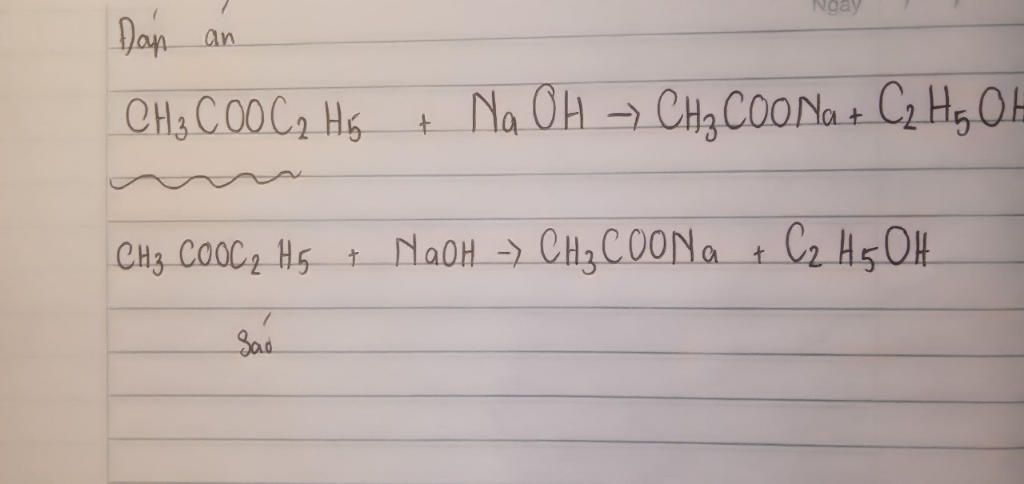 Ngày
Đáp án
CH3COOC2H5 + NaOH → CH3COONa + C2H5OH
CH3COOC2H5 + NaOH → CH3COONa + C2H5OH